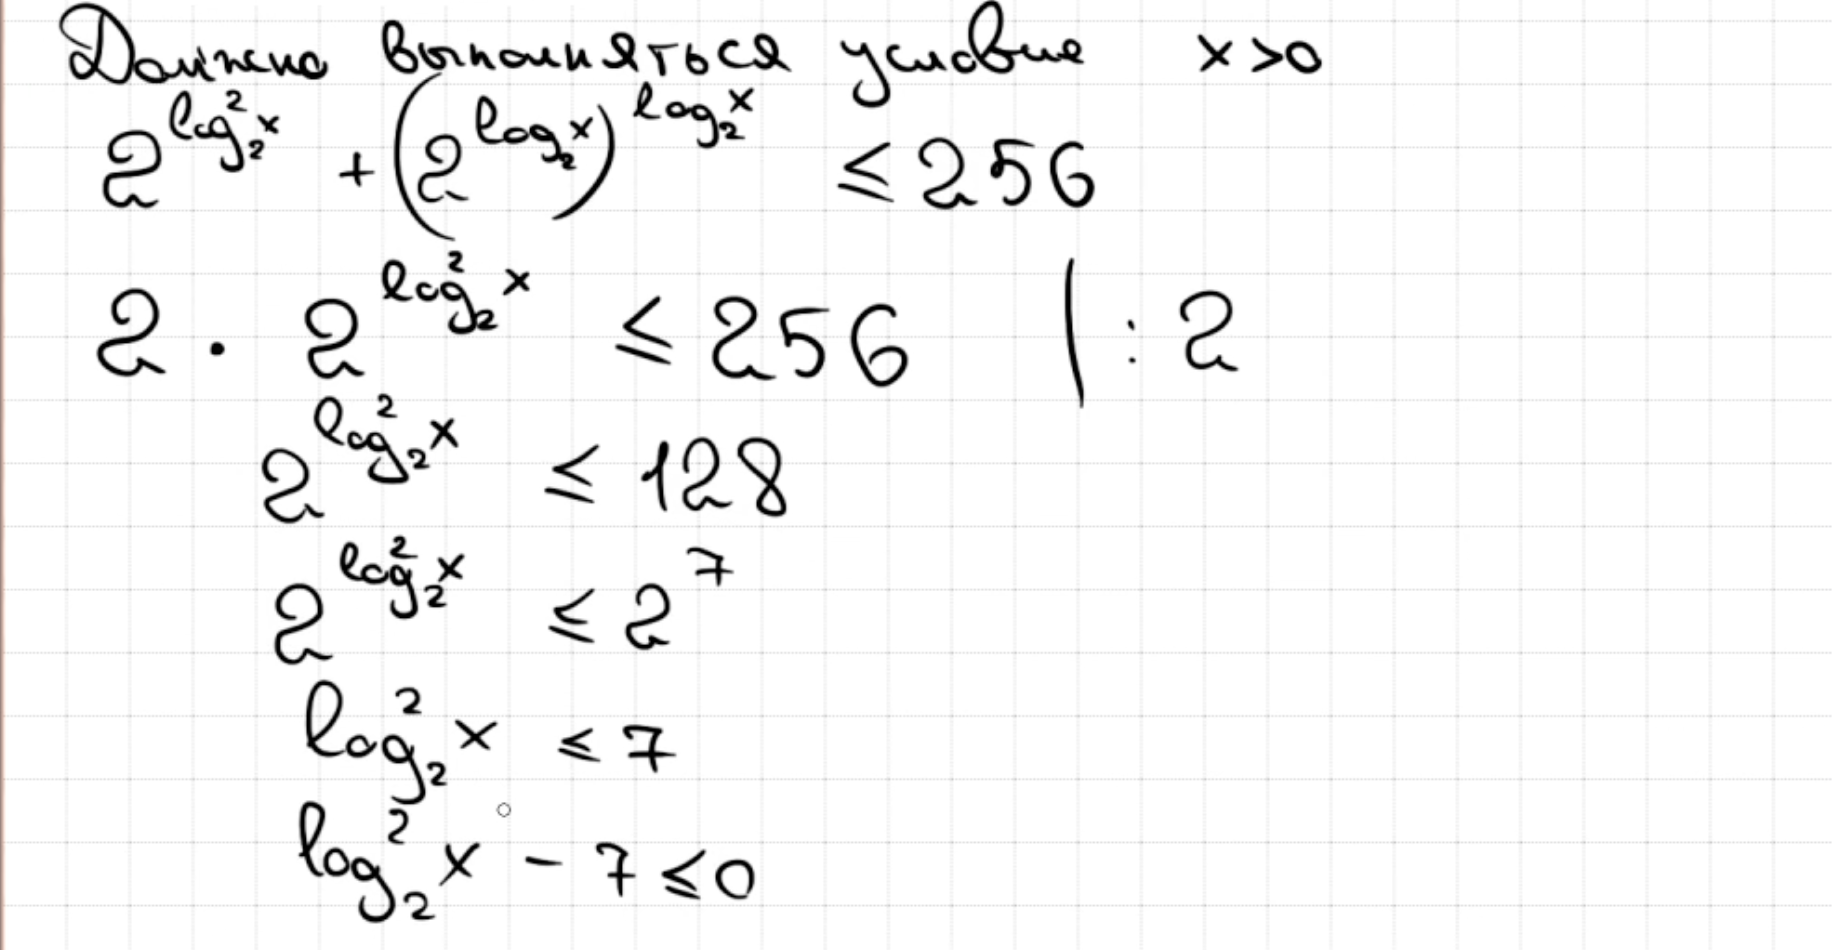 Должно выполняться условие x>0
2^{log_2^2 x} + (2^{log_2 x})^{log_2 x} ≤ 256
2 · 2^{log_2^2 x} ≤ 256 | : 2
2^{log_2^2 x} ≤ 128
2^{log_2^2 x} ≤ 2^7
log_2^2 x ≤ 7
log_2^2 x - 7 ≤ 0